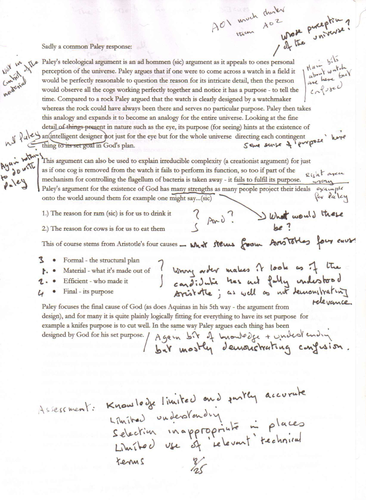 AO1 much shorter
than AO2
Whose perception
of the universe?
Sadly a common Paley response:
Paley's teleological argument is an ad hommen (sic) argument as it appeals to ones personal
perception of the universe. Paley argues that if one were to come across a watch in a field it
would be perfectly reasonable to question the reason for its intricate detail, then the person
would observe all the cogs working perfectly together and notice it has a purpose - to tell the
time. Compared to a rock Paley argued that the watch is clearly designed by a watchmaker
whereas the rock could have always been there and serves no particular purpose. Paley then takes
this analogy and expands it to become an analogy for the entire universe. Looking at the fine
detail of things present in nature such as the eye, its purpose (for seeing) hints at the existence of
an intelligent designer not just for the eye but for the whole universe directing each contingent
thing to its set goal in God's plan.
some sense of 'purpose' here
not Paley
Again wrong
to
Paley
This argument can also be used to explain irreducible complexity (a creationist argument) for just
as if one cog is removed from the watch it fails to perform its function, so too if part of the
mechanism for controlling the flagellum of bacteria is taken away - it fails to fulfil its purpose.
Paley's argument for the existence of God has many strengths as many people project their ideals
onto the world around them for example one might say...(sic)
wrong
example for
Paley
1.) The reason for ram (sic) is for us to drink it
2.) The reason for cows is for us to eat them
? And?
What would these
be?
This of course stems from Aristotle's four causes – what stems from Aristotle's four causes
3 • Formal - the structural plan
1 • Material - what it's made out of
2 • Efficient - who made it
4 • Final - its purpose
? wrong order makes it look as if the
candidate has not fully understood
Aristotle; as well as not demonstrating
relevance
Paley focuses the final cause of God (as does Aquinas in his 5th way - the argument from
design), and for many it is quite plainly logically fitting for everything to have its set purpose for
example a knifes purpose is to cut well. In the same way Paley argues each thing has been
designed by God for his set purpose.
Again bit of knowledge + understanding
but mostly demonstrating confusion.
Assessment: Knowledge limited and partly accurate
Limited understanding
Selection inappropriate in places
Limited use of 'relevant' technical
terms
/25